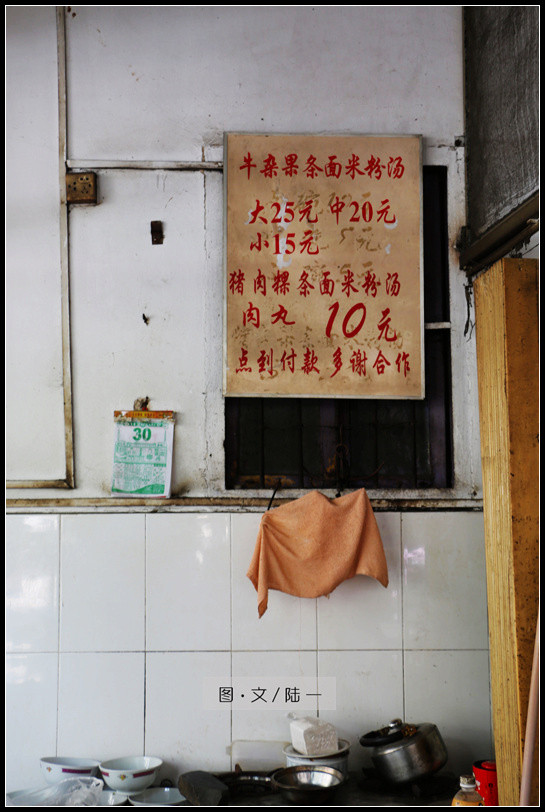 牛杂果条面米粉汤
大25元 中20元
小15元
猪肉粿条面米粉汤
肉丸 10元
点到付款 多谢合作
30
图·文/陆一